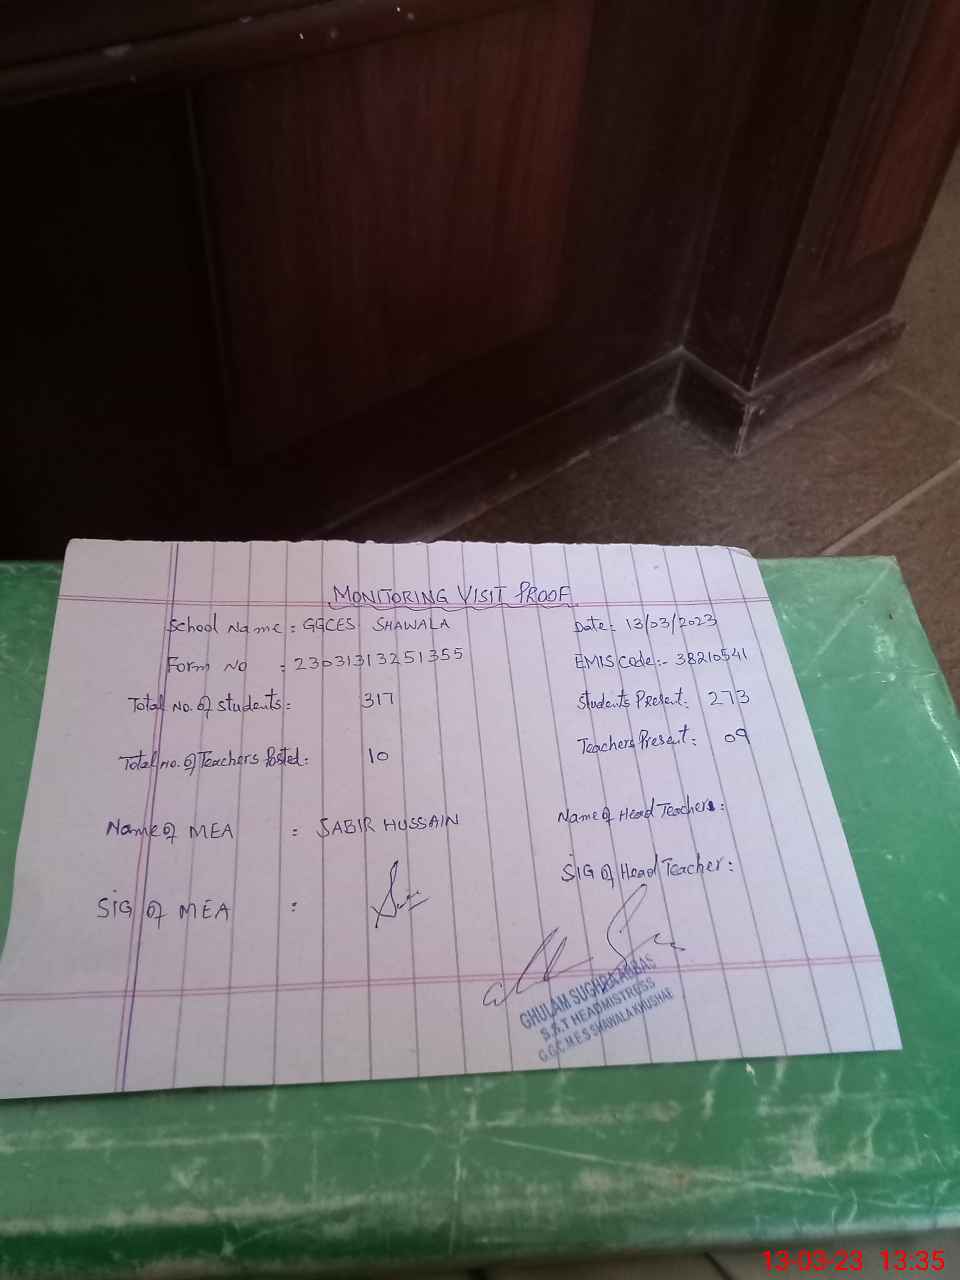 MONITORING VISIT PROOF
School Name : GGCES SHAWALA Date: 13/03/2023
Form No : 23031313251355 EMIS Code:- 38210541
Total No. of students: 317 Students Present: 273
Total no. of Teachers Posted: 10 Teachers Present: 09
Name of MEA : SABIR HUSSAIN Name of Head Teacher:
SIG of MEA : SIG of Head Teacher:
GHULAM SUGHRA ABBAS
S.S.T HEADMISTRESS
G.G.C.M.E.S SHAWALA KHUSHAB
13-03-23 13:35